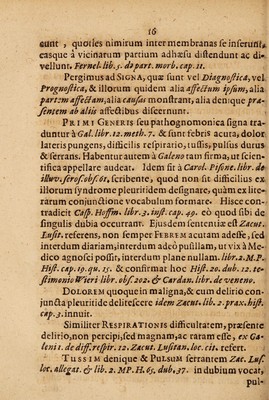 16
eunt, quoties nimirum inter membranas se inserunt,
easque à vicinarum partium adhæsu distendunt ac di-
vellunt. Fernel. lib. 5. de part. morb. cap. 11.
Pergimus ad SIGNA, quæ sunt vel Diagnostica, vel
Prognostica, & illorum quidem alia affectum ipsum, alia
partem affectam, alia causas monstrant, alia denique præ-
sentem ab aliis affectibus discernunt.
PRIMI GENERIS seu pathognomonica signa tra-
duntur à Gal. libr. 12. meth. 7. & sunt febris acuta, dolor
lateris pungens, difficilis respiratio, tussis, pulsus durus
& serrans. Habentur autem à Galeno tam firma, ut scien-
tifica appellare audeat. Idem sit à Carol. Pisone. libr. de
illuv. seros. obs. 61, scribente, quod non sit difficilius ex
illorum syndrome pleuritidem designare, quàm ex lite-
rarum conjunctione vocabulum formare. Hisce con-
tradicit Casp. Hoffm. libr. 3. inst. cap. 49. eò quod sibi de
singulis dubia occurrant. Ejusdem sententiæ est Zacut.
Lusit. referens, non semper FEBREM acutam adesse, sed
interdum diariam, interdum adeò pusillam, ut vix à Me-
dico agnosci possit, interdum plane nullam. libr. 2. M.P.
Hist. cap. 19. qu. 15. & confirmat hoc Hist. 20. dub. 12. te-
stimonio Wieri libr. obs. 202. & Cardan. libr. de veneno.
DOLOREM quoque in maligna, & cum delirio con-
juncta pleuritide delitescere idem Zacut. lib. 2. prax. hist.
cap. 3. innuit.
Similiter RESPIRATIONIS difficultatem, præsente
delirio, non percipi, sed magnam, ac raram esse, ex Ga-
lenit. de diff. respir. 12. Zacut. Lusitan. loc. cit. refert.
TUSSIM denique & PULSUM serrantem Zac. Lus.
loc. allegat. & lib. 2. M.P. H. 65. dub. 37. in dubium vocat,
pul-